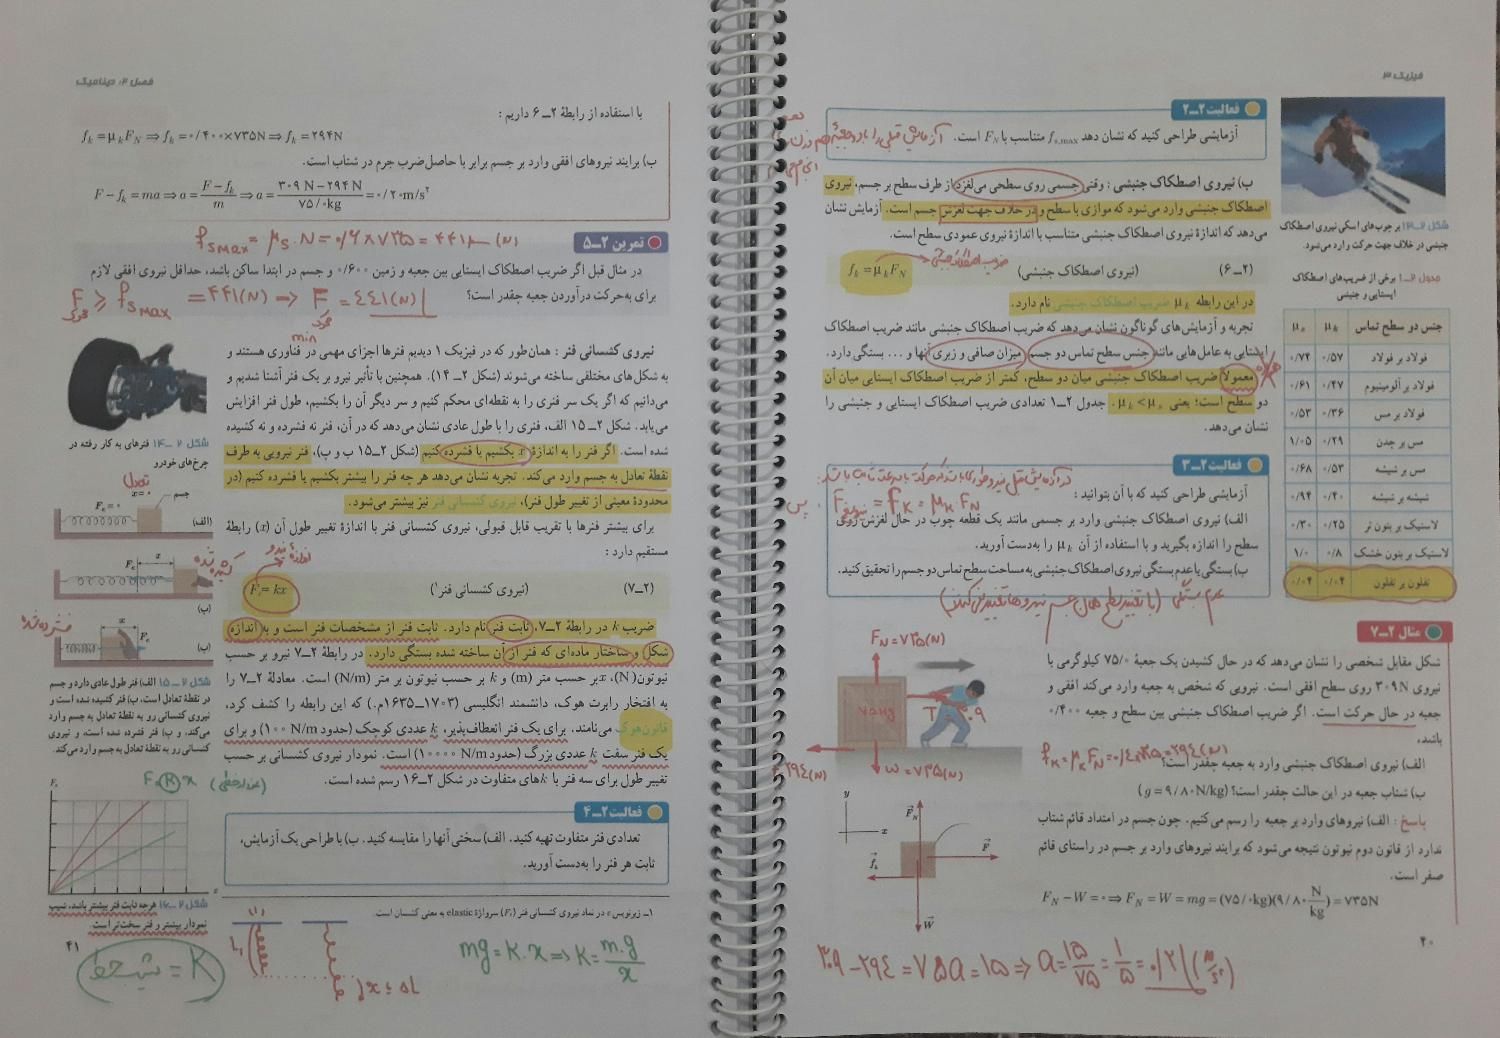 فیزیک ۳
فعالیت ۲ــ۲
آزمایشی طراحی کنید که نشان دهد fs,max متناسب با FN است.
ب) نیروی اصطکاک جنبشی : وقتی جسمی روی سطحی می‌لغزد از طرف سطح بر جسم، نیروی
اصطکاک جنبشی وارد می‌شود که موازی با سطح و در خلاف جهت لغزش جسم است. آزمایش نشان
می‌دهد که اندازهٔ نیروی اصطکاک جنبشی متناسب با اندازهٔ نیروی عمودی سطح است.
fk = μk FN (نیروی اصطکاک جنبشی) (۲ــ۶)
ضریب اصطکاک جنبشی
در این رابطه μk ضریب اصطکاک جنبشی نام دارد.
تجربه و آزمایش‌های گوناگون نشان می‌دهد که ضریب اصطکاک جنبشی مانند ضریب اصطکاک
ایستایی به عامل‌هایی مانند جنس سطح تماس دو جسم، میزان صافی و زبری آنها و ... بستگی دارد.
معمولاً ضریب اصطکاک جنبشی میان دو سطح، کمتر از ضریب اصطکاک ایستایی میان آن
دو سطح است؛ یعنی μk < μs . جدول ۲ــ۱ تعدادی ضریب اصطکاک ایستایی و جنبشی را
نشان می‌دهد.
شکل ۲ــ۱۳ بر چوب‌های اسکی نیروی اصطکاک
جنبشی در خلاف جهت حرکت وارد می‌شود.
جدول ۲ــ۱ برخی از ضریب‌های اصطکاک
ایستایی و جنبشی
جنس دو سطح تماس μk μs
فولاد بر فولاد ۰/۵۷ ۰/۷۴
فولاد بر آلومینیوم ۰/۴۷ ۰/۶۱
فولاد بر مس ۰/۳۶ ۰/۵۳
مس بر چدن ۰/۲۹ ۱/۰۵
مس بر شیشه ۰/۵۳ ۰/۶۸
شیشه بر شیشه ۰/۴۰ ۰/۹۴
لاستیک بر بتون تر ۰/۲۵ ۰/۳۰
لاستیک بر بتون خشک ۰/۸ ۱/۰
تفلون بر تفلون ۰/۰۴ ۰/۰۴
فعالیت ۲ــ۳
آزمایشی طراحی کنید که با آن بتوانید :
الف) نیروی اصطکاک جنبشی وارد بر جسمی مانند یک قطعه چوب در حال لغزش روی
سطح را اندازه بگیرید و با استفاده از آن μk را به‌دست آورید.
ب) بستگی یا عدم بستگی نیروی اصطکاک جنبشی به مساحت سطح تماس دو جسم را تحقیق کنید.
عدم بستگی
مثال ۲ــ۷
شکل مقابل شخصی را نشان می‌دهد که در حال کشیدن یک جعبهٔ ۷۵/۰ کیلوگرمی با
نیروی ۳۰۹N روی سطح افقی است. نیرویی که شخص به جعبه وارد می‌کند افقی و
جعبه در حال حرکت است. اگر ضریب اصطکاک جنبشی بین سطح و جعبه ۰/۴۰۰
باشد،
الف) نیروی اصطکاک جنبشی وارد به جعبه چقدر است؟
ب) شتاب جعبه در این حالت چقدر است؟ (g = ۹/۸۰N/kg)
پاسخ : الف) نیروهای وارد بر جعبه را رسم می‌کنیم. چون جسم در امتداد قائم شتاب
ندارد از قانون دوم نیوتون نتیجه می‌شود که برایند نیروهای وارد بر جسم در راستای قائم
صفر است.
FN − W = ۰ ⇒ FN = W = mg = (۷۵/۰kg)(۹/۸۰ N/kg) = ۷۳۵N
FN = ۷۳۵(N)
W = ۷۳۵(N)
y
x
FN
F
fk
W
۳۰۹ − ۲۹۴ = ۷۵a = ۱۵ ⇒ a = ۱۵/۷۵ = ۱/۵ = ۰/۲ (m/s²)
۴۰
فصل ۲؛ دینامیک
با استفاده از رابطهٔ ۲ــ۶ داریم :
fk = μk FN ⇒ fk = ۰/۴۰۰×۷۳۵N ⇒ fk = ۲۹۴N
ب) برایند نیروهای افقی وارد بر جسم برابر با حاصل‌ضرب جرم در شتاب است.
F − fk = ma ⇒ a = (F − fk)/m ⇒ a = (۳۰۹ N − ۲۹۴ N)/۷۵/۰kg = ۰/۲۰m/s²
fs max = μs . N = ۰/۶ × ۷۳۵ = ۴۴۱ (N)
تمرین ۲ــ۵
در مثال قبل اگر ضریب اصطکاک ایستایی بین جعبه و زمین ۰/۶۰۰ و جسم در ابتدا ساکن باشد، حداقل نیروی افقی لازم
برای به‌حرکت درآوردن جعبه چقدر است؟
F ≥ fs max = ۴۴۱(N) ⇒ F = ۴۴۱(N)
min
نیروی کشسانی فنر : همان‌طور که در فیزیک ۱ دیدیم فنرها اجزای مهمی در فناوری هستند و
به شکل‌های مختلفی ساخته می‌شوند (شکل ۲ــ۱۴). همچنین با تأثیر نیرو بر یک فنر آشنا شدیم و
می‌دانیم که اگر یک سر فنری را به نقطه‌ای محکم کنیم و سر دیگر آن را بکشیم، طول فنر افزایش
می‌یابد. شکل ۲ــ۱۵ الف، فنری را با طول عادی نشان می‌دهد که در آن، فنر نه فشرده و نه کشیده
شده است. اگر فنر را به اندازهٔ x بکشیم یا فشرده کنیم (شکل ۲ــ۱۵ ب و پ)، فنر نیرویی به طرف
نقطهٔ تعادل به جسم وارد می‌کند. تجربه نشان می‌دهد هر چه فنر را بیشتر بکشیم یا فشرده کنیم (در
محدودهٔ معینی از تغییر طول فنر)، نیروی کشسانی فنر نیز بیشتر می‌شود.
برای بیشتر فنرها با تقریب قابل قبولی، نیروی کشسانی فنر با اندازهٔ تغییر طول آن (x) رابطهٔ
مستقیم دارد :
اندازهٔ نیرو
Fe = kx (نیروی کشسانی فنر۱) (۲ــ۷)
ضریب k در رابطهٔ ۲ــ۷، ثابت فنر نام دارد. ثابت فنر از مشخصات فنر است و به اندازه
شکل و ساختار ماده‌ای که فنر از آن ساخته شده بستگی دارد. در رابطهٔ ۲ــ۷ نیرو بر حسب
نیوتون (N)، x بر حسب متر (m) و k بر حسب نیوتون بر متر (N/m) است. معادلهٔ ۲ــ۷ را
به افتخار رابرت هوک، دانشمند انگلیسی (۱۷۰۳ــ۱۶۳۵م.) که این رابطه را کشف کرد،
قانون هوک می‌نامند. برای یک فنر انعطاف‌پذیر، k عددی کوچک (حدود ۱۰۰ N/m) و برای
یک فنر سفت k عددی بزرگ (حدود ۱۰۰۰۰ N/m) است. نمودار نیروی کشسانی بر حسب
تغییر طول برای سه فنر با kهای متفاوت در شکل ۲ــ۱۶ رسم شده است.
فعالیت ۲ــ۴
تعدادی فنر متفاوت تهیه کنید. الف) سختی آنها را مقایسه کنید. ب) با طراحی یک آزمایش،
ثابت هر فنر را به‌دست آورید.
۱ــ زیرنویس e در نماد نیروی کشسانی فنر (Fe) سرواژهٔ elastic به معنی کشسان است.
شکل ۲ــ۱۴ فنرهای به کار رفته در
چرخ‌های خودرو
تعادل
x = ۰
جسم
Fe = ۰
(الف)
کشیده شده
x
Fe
(ب)
فشرده شده
x
Fe
(پ)
شکل ۲ــ۱۵ الف) فنر طول عادی دارد و جسم
در نقطهٔ تعادل است، ب) فنر کشیده شده است و
نیروی کشسانی رو به نقطهٔ تعادل به جسم وارد
می‌کند، و پ) فنر فشرده شده است، و نیروی
کشسانی رو به نقطهٔ تعادل به جسم وارد می‌کند.
Fe
x
شکل ۲ــ۱۶ هرچه ثابت فنر بیشتر باشد، شیب
نمودار بیشتر و فنر سخت‌تر است.
شیب خط = K
mg = K . x ⇒ K = m.g/x
۴۱